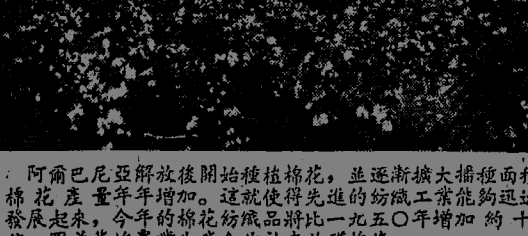 阿爾巴尼亞解放後開始種植棉花，並逐漸擴大播種面積
棉花產量年年增加。這就使得先進的紡織工業能夠迅速
發展起來，今年的棉花紡織品將比一九五〇年增加約十